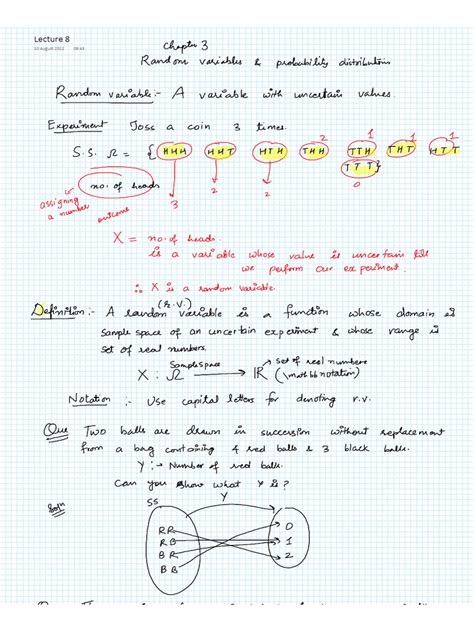 Lecture 8
10 August 2022 09:45
Chapter 3
Random variables & probability distributions
Random variable:- A variable with uncertain values.
Experiment Toss a coin 3 times.
2 1 1 1
S.S. Ω = { HHH HHT HTH THH TTH THT HTT
TTT}
no. of heads
0
assigning a number
outcome
3 2 2
X = no. of heads.
is a variable whose value is uncertain till
we perform our experiment.
∴ X is a random variable.
(r.v.)
Definition:- A random variable is a function whose domain is
sample space of an uncertain experiment & whose range is
set of real numbers.
Sample space → set of real numbers
X : Ω → ℝ (mathbb notation)
Notation :- Use capital letters for denoting r.v.
Que Two balls are drawn in succession without replacement
from a bag containing 4 red balls & 3 black balls.
Y :→ Number of red balls.
Can you show what Y is?
Soln
SS Y
RR 0
RB 1
BR 2
BB